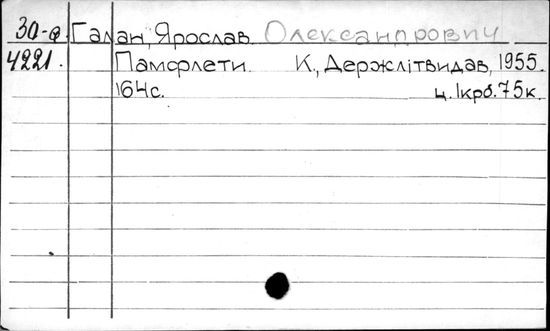 30-а Галан, Ярослав Олександрович
4221. Памфлети. К., Держлітвидав, 1955.
164с. ц. 1крб. 75к.